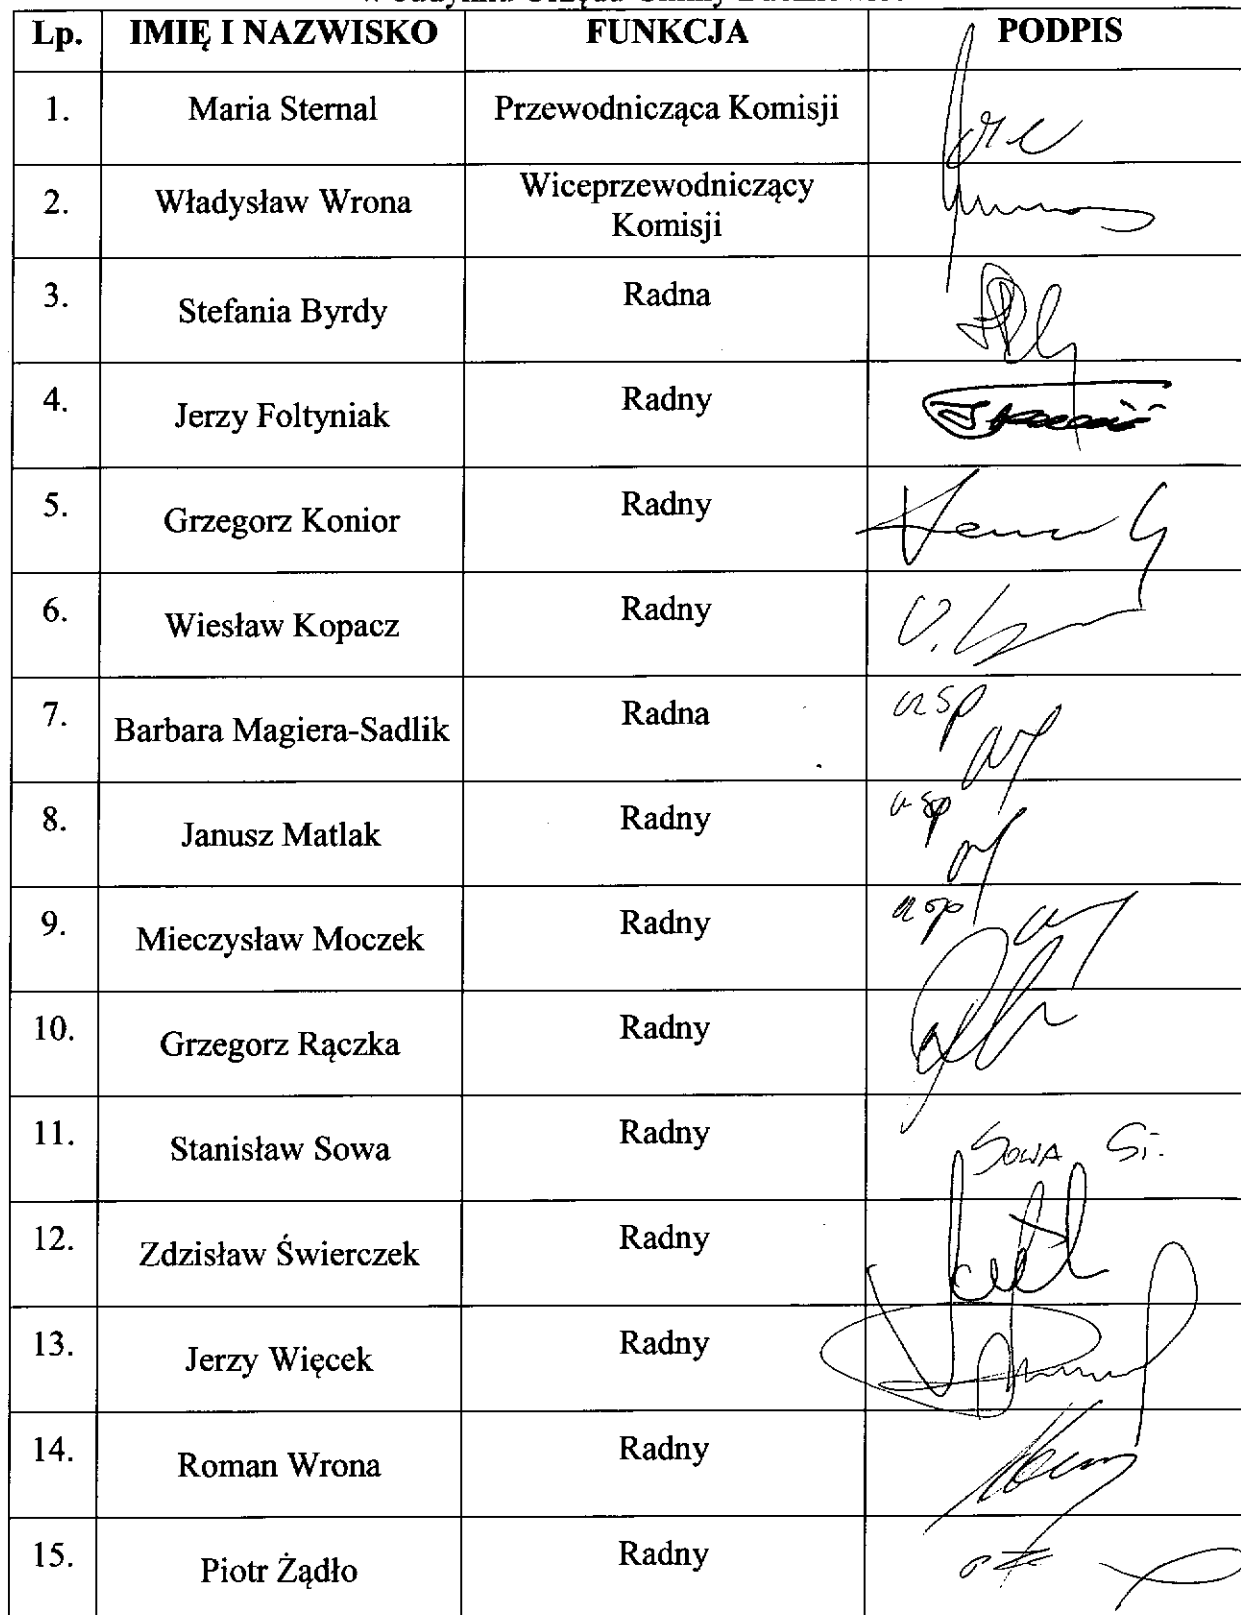 Lp. IMIĘ I NAZWISKO FUNKCJA PODPIS
1. Maria Sternal Przewodnicząca Komisji
2. Władysław Wrona Wiceprzewodniczący
Komisji
3. Stefania Byrdy Radna
4. Jerzy Foltyniak Radny
5. Grzegorz Konior Radny
6. Wiesław Kopacz Radny
7. Barbara Magiera-Sadlik Radna usp
8. Janusz Matlak Radny usp
9. Mieczysław Moczek Radny usp
10. Grzegorz Rączka Radny
11. Stanisław Sowa Radny SOWA St.
12. Zdzisław Świerczek Radny
13. Jerzy Więcek Radny
14. Roman Wrona Radny
15. Piotr Żądło Radny